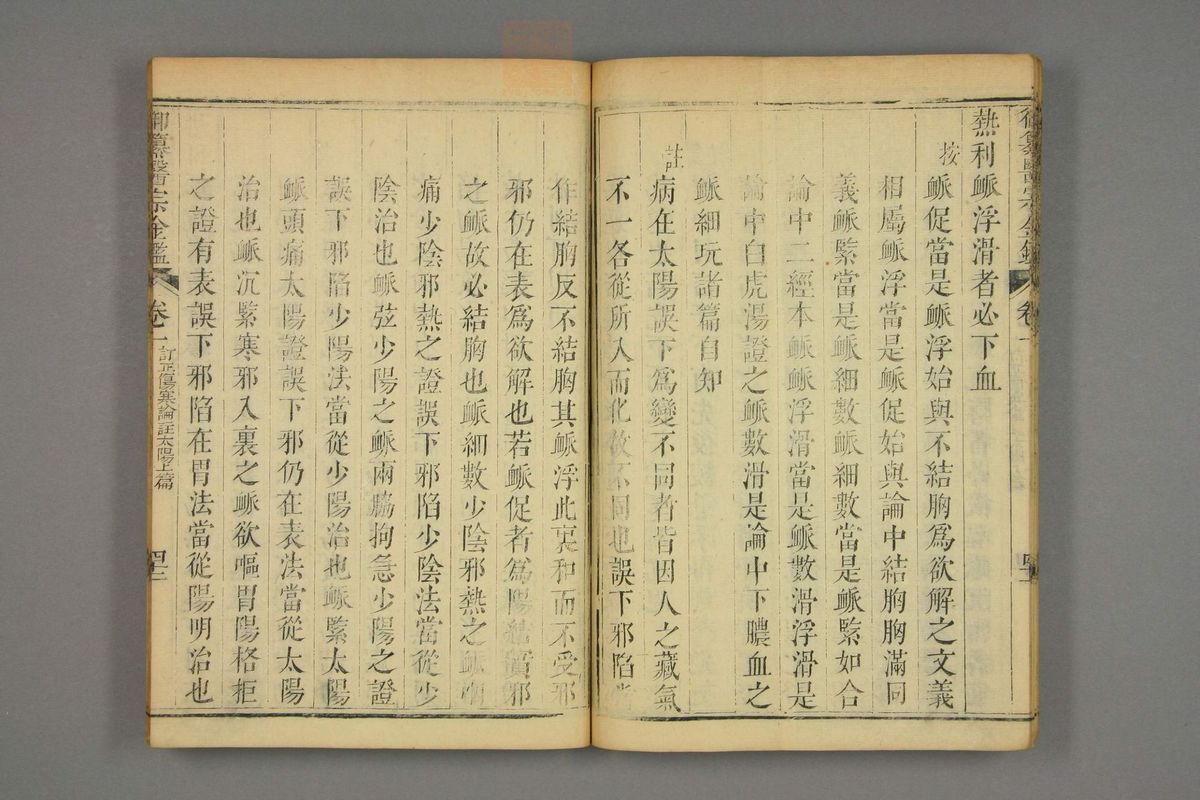 熱利脈浮滑者必下血
按
脈促當是脈浮始與不結胸爲欲解之文義
相屬脈浮當是脈促始與論中結胸胸滿同
義脈緊當是脈細數脈細數當是脈緊如合
論中二經本脈脈浮滑當是脈數滑浮滑是
論中白虎湯證之脈數滑是論中下膿血之
脈細玩諸篇自知
註
病在太陽誤下爲變不同者皆因人之藏氣
不一各從所入而化故不同也誤下邪陷
作結胸反不結胸其脈浮此裏和而不受邪
邪仍在表爲欲解也若脈促者爲陽結實邪
之脈故必結胸也脈細數少陰邪熱之脈咽
痛少陰邪熱之證誤下邪陷少陰法當從少
陰治也脈弦少陽之脈兩脇拘急少陽之證
誤下邪陷少陽法當從少陽治也脈緊太陽
脈頭痛太陽證誤下邪仍在表法當從太陽
治也脈沉緊寒邪入裏之脈欲嘔胃陽格拒
之證有表誤下邪陷在胃法當從陽明治也
御纂醫宗金鑑 卷一 訂正傷寒論註太陽上篇